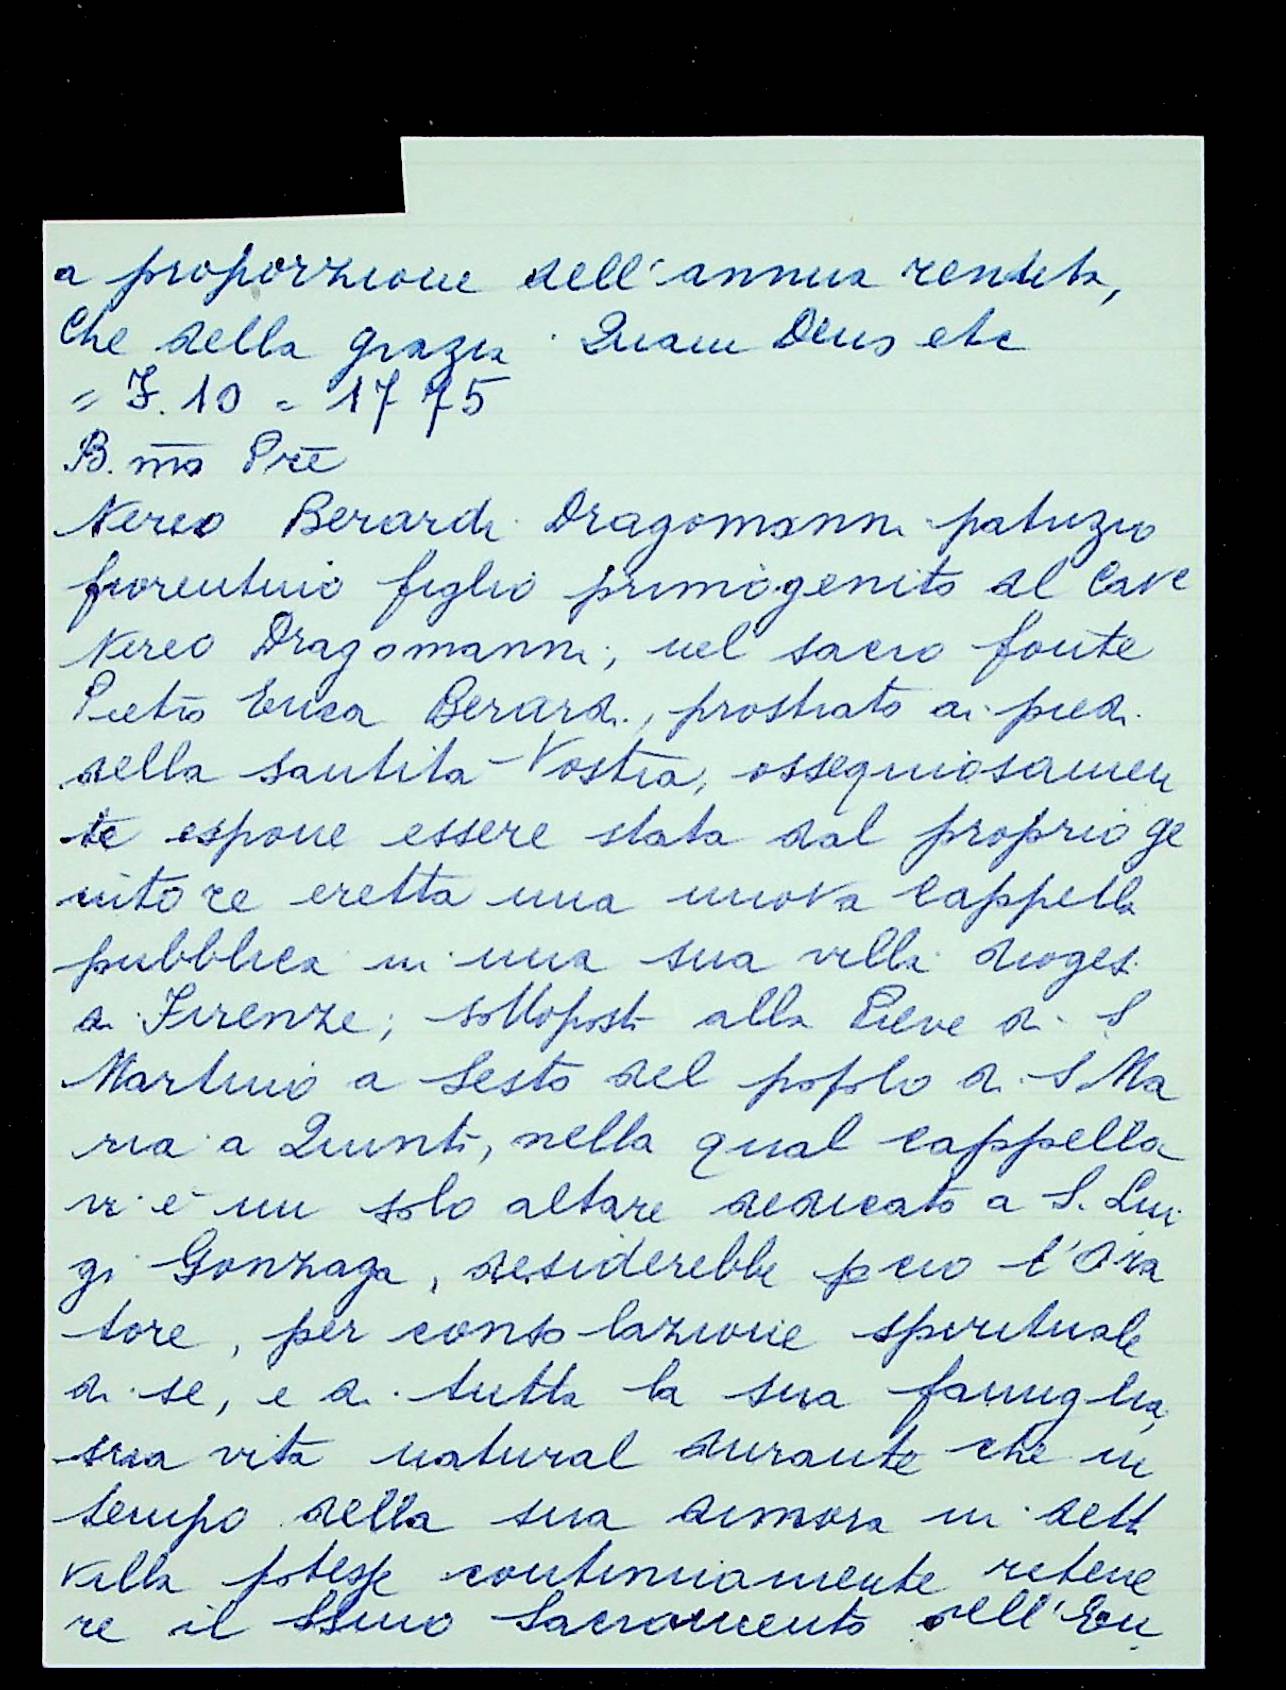 a proporzione dell'annua rendita,
Che della grazia. Quam Deus etc
= F. 10 = 1775
B. mo Pre
Nereo Berardi Dragomanni patrizio
fiorentino figlio primogenito al Cave
Nereo Dragomanni, nel sacro fonte
Pietro Enea Berardi, prostrato ai piedi
della Santità Vostra, ossequiosamen
te espone essere stata dal proprio ge
nitore eretta una nuova Cappella
pubblica in una sua villa dioges.
di Firenze; sottoposta alla Pieve di S
Martino a Sesto del popolo di S Ma
ria a Quinto, nella qual cappella
vi è un solo altare dedicato a S. Lui
gi Gonzaga, desiderebbe pcio l'Ora
tore, per consolazione spirituale
di se, e di tutta la sua famiglia,
sua vita natural durante che in
tempo della sua dimora in dett
Villa potesse continuamente ritene
re il SSmo Sacramento dell'Eu